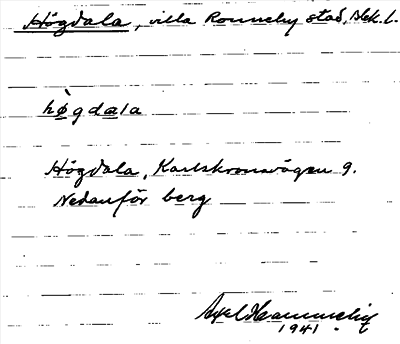 Högdala, villa Ronneby stad, Blek. l.
hø̀gdala
Högdala, Karlskronavägen 9.
Nedanför berg
Axel
1941.